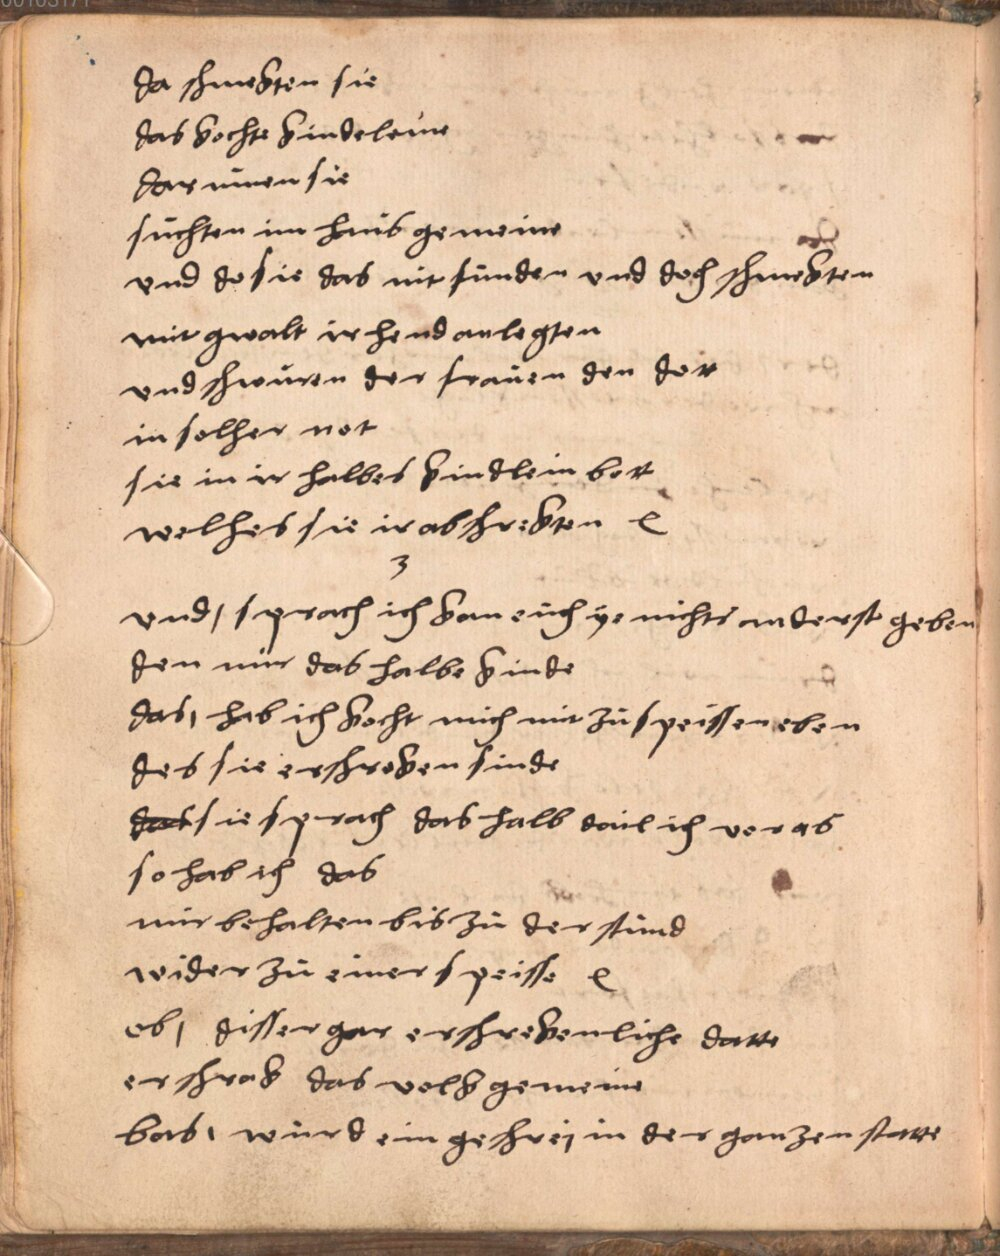 da schmekten sie
das kochte kindeleine
dar umen sie
suchten im haus gemeine
und do sie das nit funden und doch schmekten
mit gwalt ir hend anlegten
und schwuren der frauen den dott
in solher not
sie in ir halbes kindlein bott
welhes sie ir abschrekten
3
und, sprach ich kan euch ye nichts anderst geben
den nur das halbe kinde
das, hab ich kocht mich mit zu speissen eben
des sie erschroken sinde
sie sprach das halb dail ich vor as
so hab ich das
mir behalten bis zu der stund
wider zu einer speisse
ob, disser gar erschrekenliche datte
erschrak das volk gemeine
bas, wurd ein geschrei in der ganzen statte